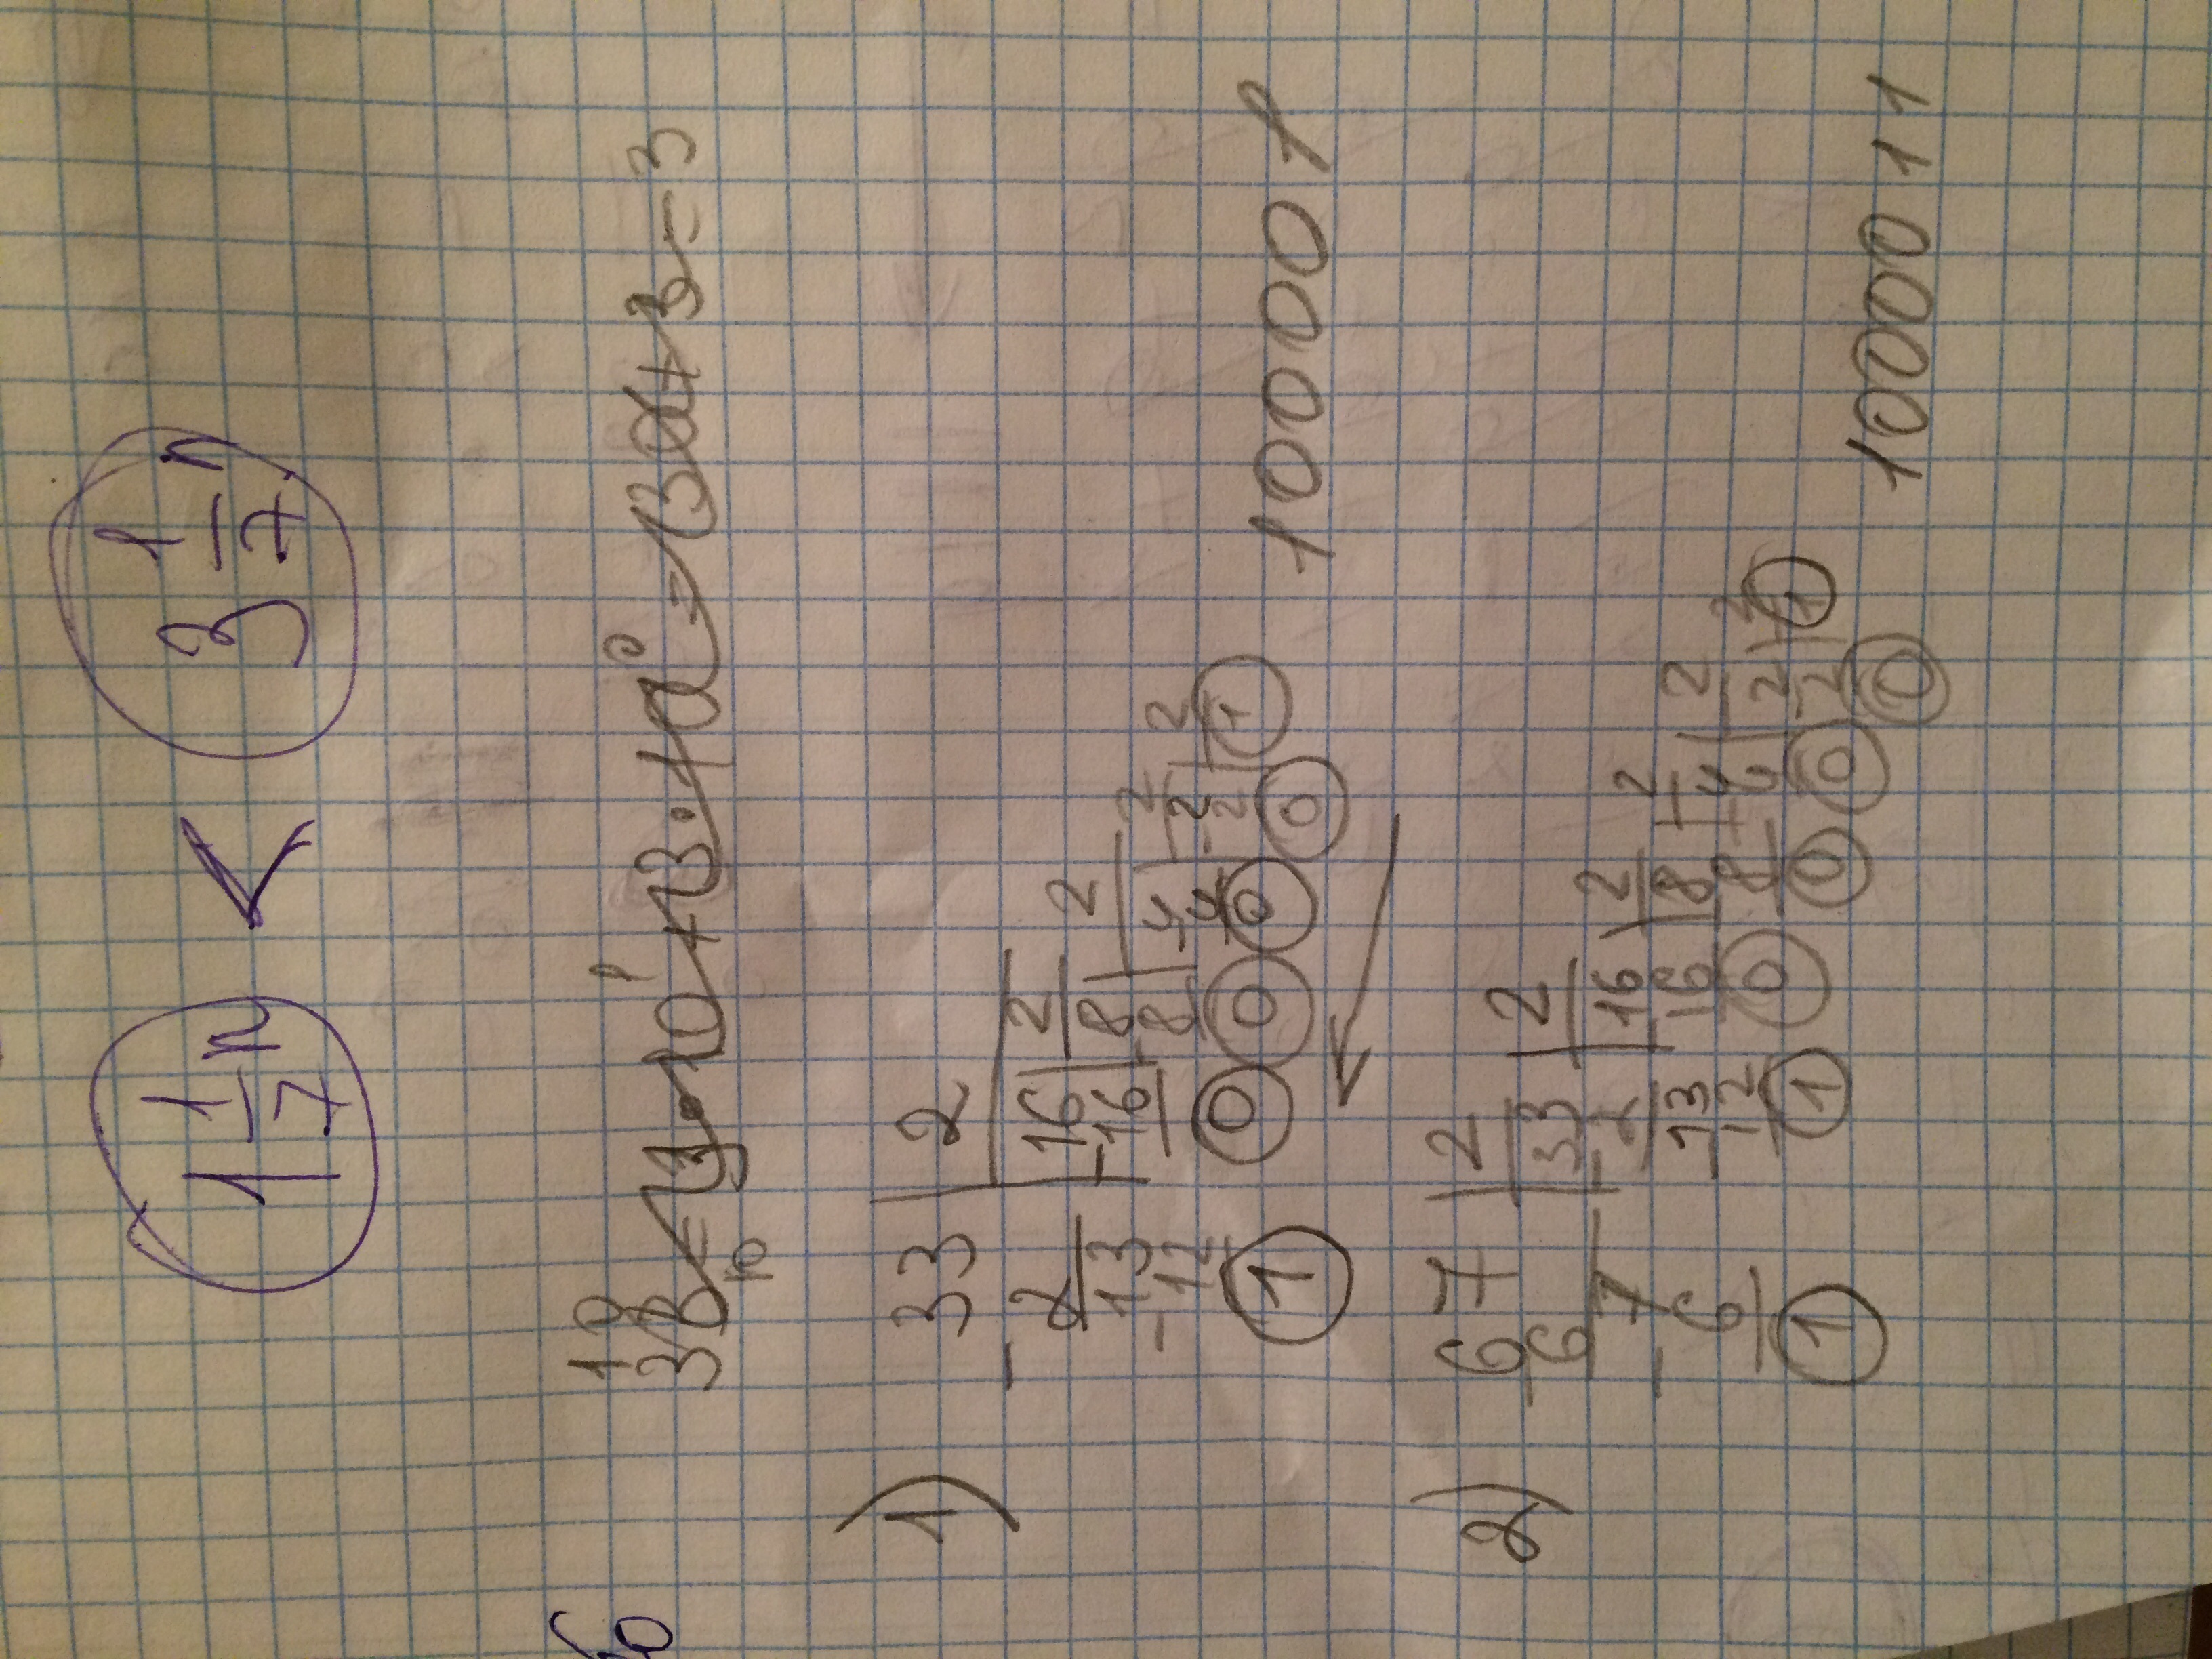 1 1/7 п < 3 1/7 п
1 0
33 = 3 · 10¹ + 3 · 10⁰ = 30 + 3 = 3
10
б
1) 33 2
- 2 16 2
13 - 16 8 2
- 12 0 8 4 2
1 0 - 4 2 2
0 - 2 1
0
100001
2) 67 2
- 6 33 2
7 - 2 16 2
- 6 13 16 8 2
1 - 12 0 8 4 2
1 0 4 2 2
0 2 1
0
1000011